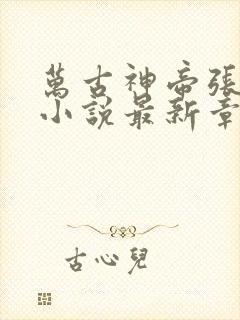 萬古神帝張
小說最新章
古心兒